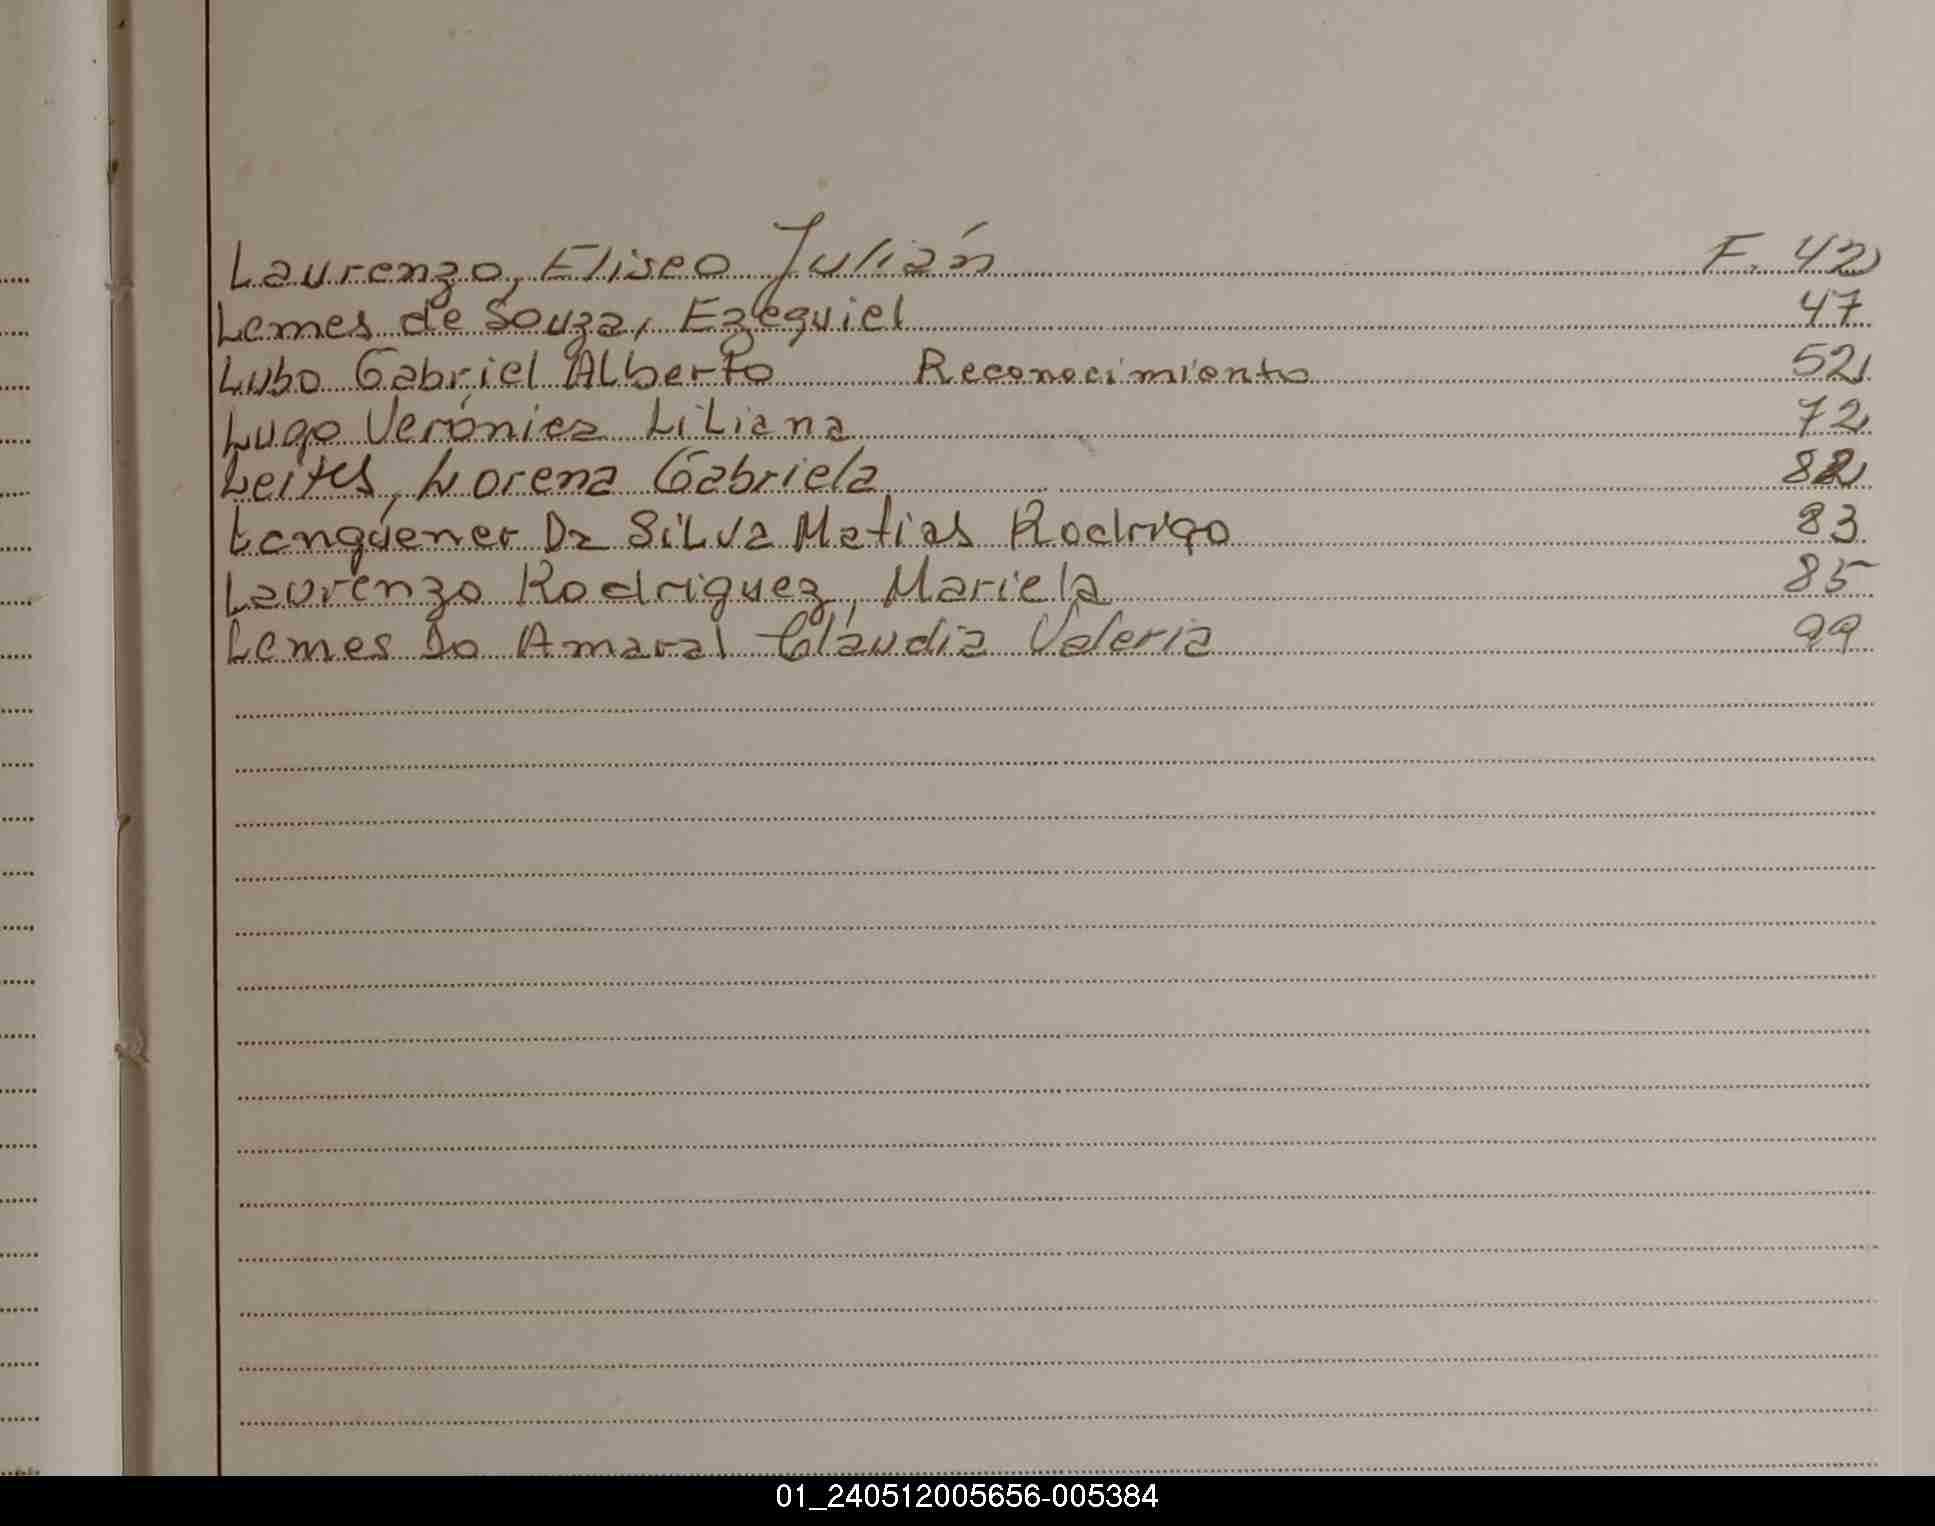 Laurenzo, Eliseo Julián F. 42
Lemes de Souza, Ezequiel 47
Lubo Gabriel Alberto Reconocimiento 52
Lugo Verónica Liliana 72
Leites, Lorena Gabriela 82
Langüener Da Silva Matias Rodrigo 83
Laurenzo Rodriguez, Mariela 85
Lemes Do Amaral Claudia Valeria 99
01_240512005656-005384